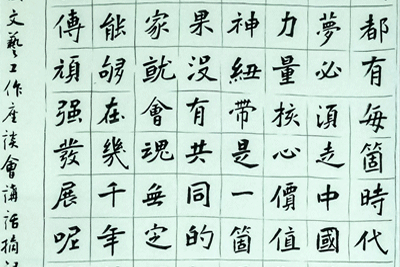 都有每箇時代
夢必須走中國
力量核心價值
神紐帶是一箇
果没有共同的
家就會魂無定
能够在幾千年
傳頑强發展呢
文藝工作座談會講話摘